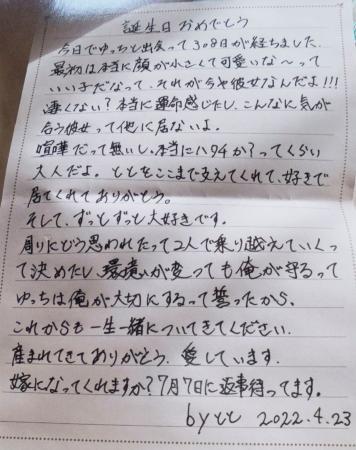 誕生日おめでとう
今日でゆっちと出会って308日が経ちました.
最初は本当に顔が小さくて可愛いな〜って
いい子だなって、それが今や彼女なんだよ!!!
凄くない?本当に運命感じたし、こんなに気が
合う彼女って他に居ないよ.
喧嘩だって無いし、本当にハタチか?ってくらい
大人だよ。ととをここまで支えてくれて、好きで
居てくれてありがとう。
そして、ずっとずっと大好きです。
周りにどう思われたって2人で乗り越えていくっ
て決めたし、環境が変っても俺が守るって
ゆっちは俺が大切にするって誓ったから.
これからも一生一緒についてきてください.
産まれてきてありがとう.愛しています.
嫁になってくれますか?7月7日に返事待ってます。
byとと 2022.4.23